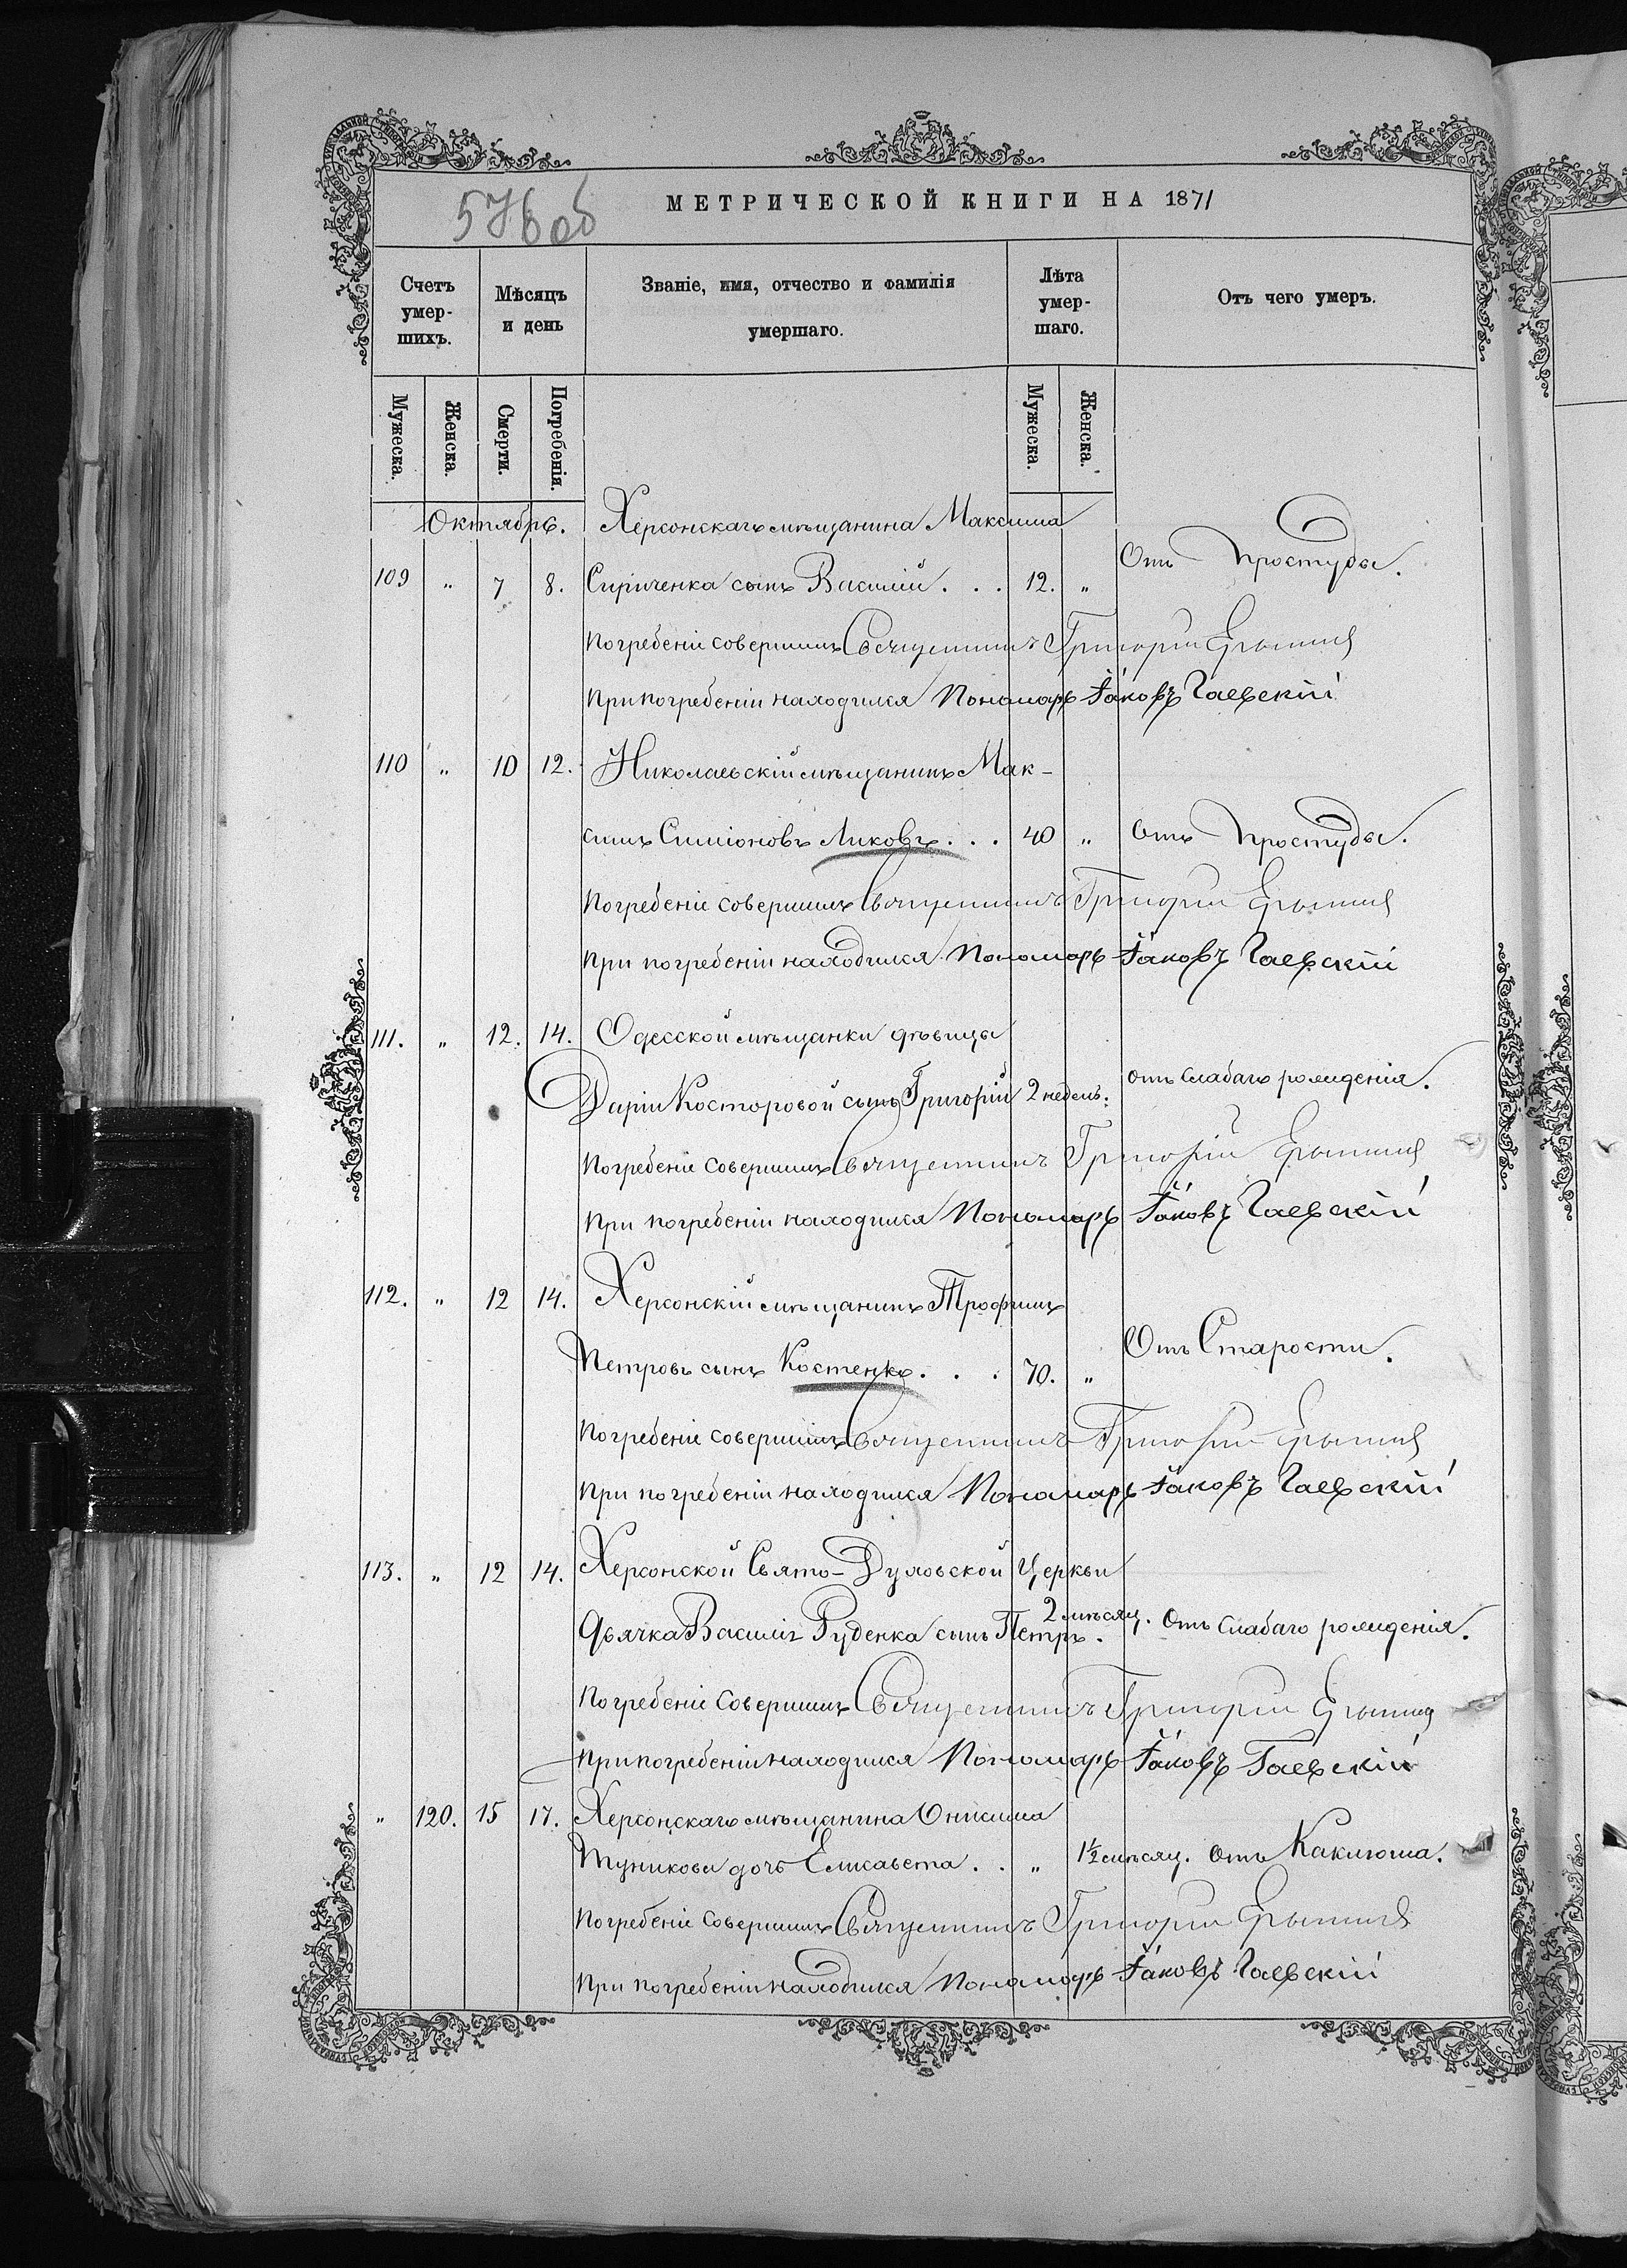 576 об
МЕТРИЧЕСКОЙ КНИГИ НА 1871
Счетъ умер-шихъ.
Мѣсяцъ и день
Званіе, имя, отчество и фамилія умершаго.
Лѣта умер-шаго.
Отъ чего умеръ.
Мужеска. Женска. Смерти. Погребенія. Мужеска. Женска.
Октябрь. Херсонскаго мѣщанина Максима
109 " 7 8. Сириченка сынъ Василій . . . 12. " Отъ простуды.
Погребеніе совершилъ Священникъ Григорій
При погребеніи находился Пономарь Іаковъ Гаевскій
110 " 10 12. Николаевскій мѣщанинъ Мак-
симъ Симіоновъ Ликовъ . . . 40 " Отъ простуды.
Погребеніе совершилъ Священникъ Григорій
При погребеніи находился Пономарь Іаковъ Гаевскій
111. " 12. 14. Одесской мѣщанки дѣвицы
Даріи Косторовой сынъ Григорій 2 недель: отъ слабаго рожденія.
Погребеніе совершилъ Священникъ Григорій
При погребеніи находился Пономарь Іаковъ Гаевскій
112. " 12 14. Херсонскій мѣщанинъ Трофимъ
Петровъ сынъ Костенко . . . 70. " Отъ Старости.
Погребеніе совершилъ Священникъ Григорій
При погребеніи находился Пономарь Іаковъ Гаевскій
113. " 12 14. Херсонской Свято-Духовской Церкви
дьячка Василія Руденка сынъ Петръ. 2 мѣсяц. Отъ слабаго рожденія.
Погребеніе Совершилъ Священникъ Григорій
При погребеніи находился Пономарь Іаковъ Гаевскій
" 120. 15 17. Херсонскаго мѣщанина Онисима
Тупикова дочь Елисавета . . " 1½ мѣсяц. отъ Каклюша.
Погребеніе Совершилъ Священникъ Григорій
При погребеніи находился Пономарь Іаковъ Гаевскій